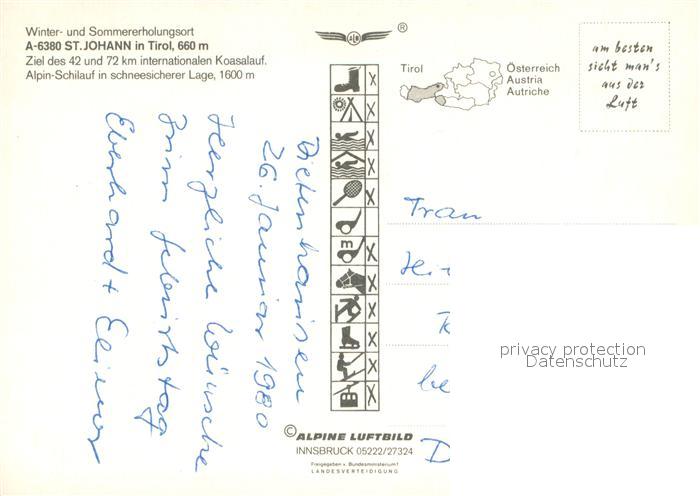 Winter- und Sommererholungsort
A-6380 ST.JOHANN in Tirol, 660 m
Ziel des 42 und 72 km internationalen Koasalauf.
Alpin-Schilauf in schneesicherer Lage, 1600 m
ALB ®
Tirol
Österreich
Austria
Autriche
am besten
sieht man's
aus der
Luft
m
26. Januar 1980
Herzliche Wünsche
zum Geburtstag
Eberhard +
Frau
privacy protection
Datenschutz
© ALPINE LUFTBILD
INNSBRUCK 05222/27324
Freigegeben v. Bundesministerium f.
LANDESVERTEIDIGUNG